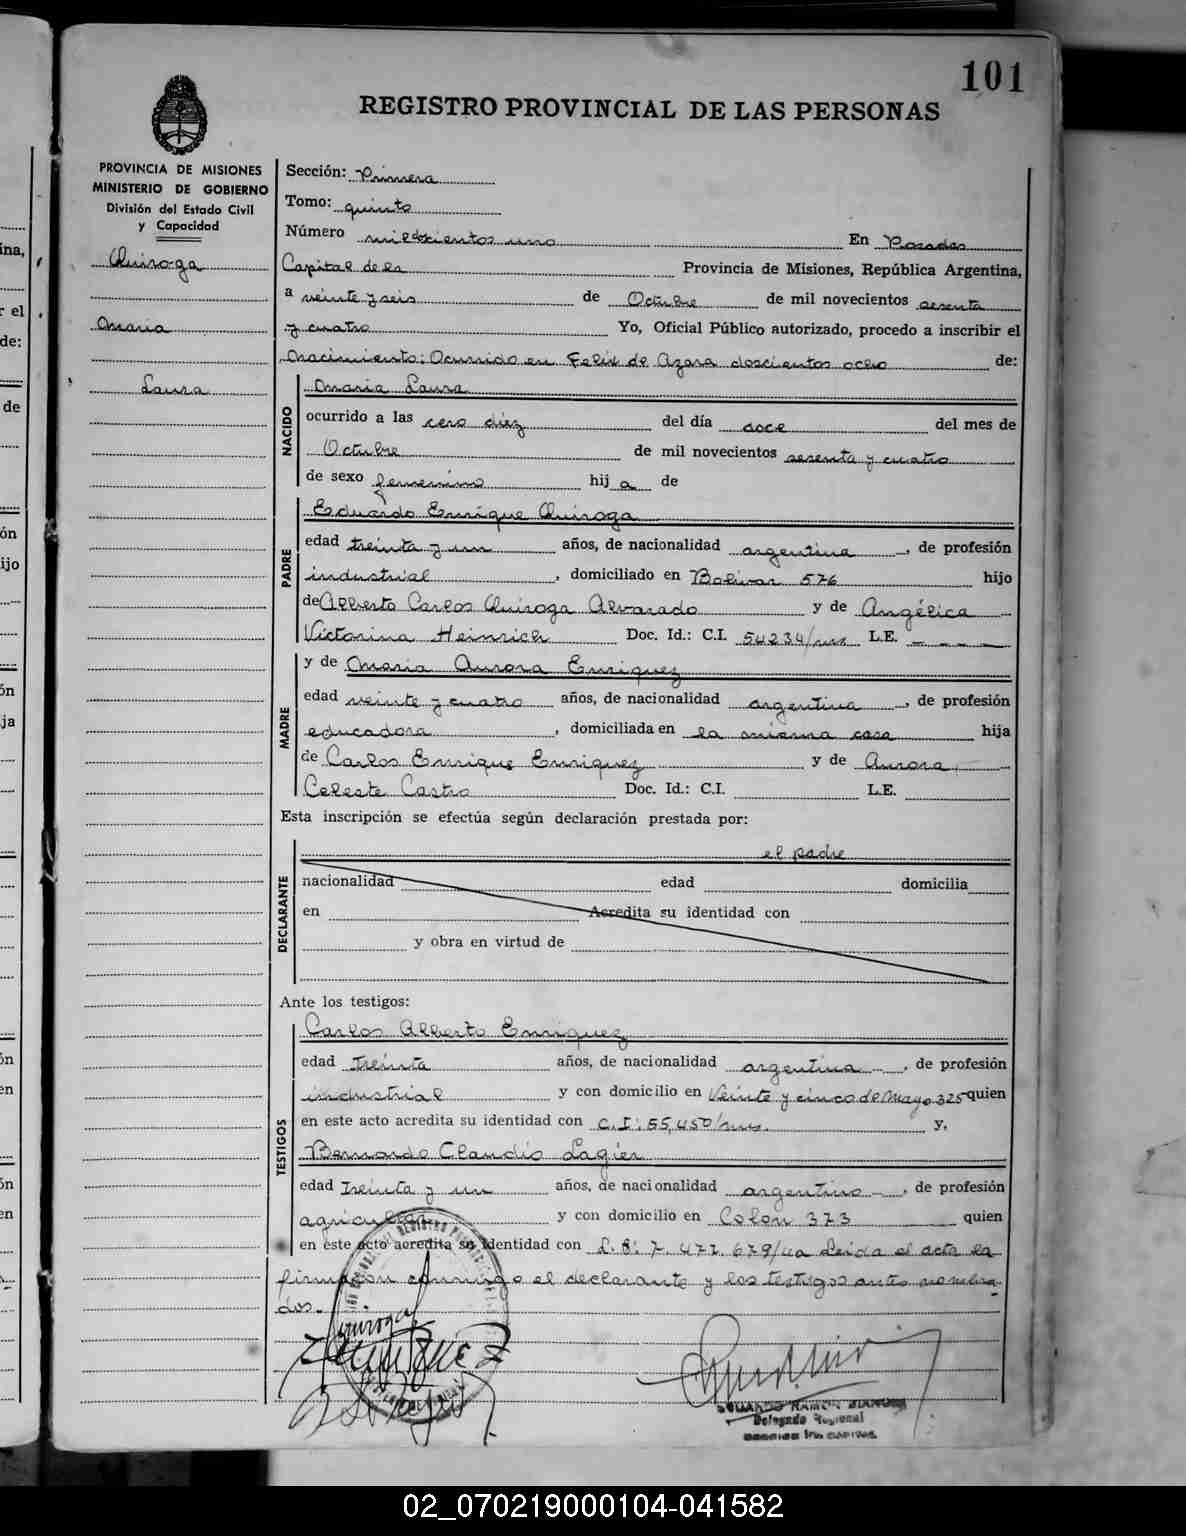 101
REGISTRO PROVINCIAL DE LAS PERSONAS
PROVINCIA DE MISIONES
MINISTERIO DE GOBIERNO
División del Estado Civil
y Capacidad
Quiroga
Maria
Laura
Sección: Primera
Tomo: quinto
Número mildoscientos uno En Posadas
Capital de la Provincia de Misiones, República Argentina,
a veinte y seis de Octubre de mil novecientos sesenta
y cuatro Yo, Oficial Público autorizado, procedo a inscribir el
Nacimiento: Ocurrido en Felix de Azara doscientos ocho de:
NACIDO
Maria Laura
ocurrido a las cero diez del día doce del mes de
Octubre de mil novecientos sesenta y cuatro
de sexo femenino hij a de
PADRE
Eduardo Enrique Quiroga
edad treinta y un años, de nacionalidad argentina, de profesión
industrial, domiciliado en Bolivar 576 hijo
de Alberto Carlos Quiroga Alvarado y de Angélica
Victorina Heinrich Doc. Id.: C.I. 54234/mis L.E. _ _ _
MADRE
y de Maria Aurora Enriquez
edad veinte y cuatro años, de nacionalidad argentina, de profesión
educadora, domiciliada en la misma casa hija
de Carlos Enrique Enriquez y de Aurora
Celeste Castro Doc. Id.: C.I. L.E.
Esta inscripción se efectúa según declaración prestada por:
DECLARANTE
el padre
nacionalidad edad domicilia
en Acredita su identidad con
y obra en virtud de
Ante los testigos:
TESTIGOS
Carlos Alberto Enriquez
edad treinta años, de nacionalidad argentina, de profesión
industrial y con domicilio en Veinte y cinco de Mayo 325 quien
en este acto acredita su identidad con C.I: 55,450/mis. y,
Bernardo Claudio Lagier
edad Treinta y un años, de nacionalidad argentino, de profesión
agricultor y con domicilio en Colon 373 quien
en este acto acredita su identidad con 7.477.679/ Leida el acta la
firman conmigo el declarante y los testigos antes nombra-
dos.-
Quiroga
Enriquez
EDUARDO RAMON
Delegado Regional
02_070219000104-041582